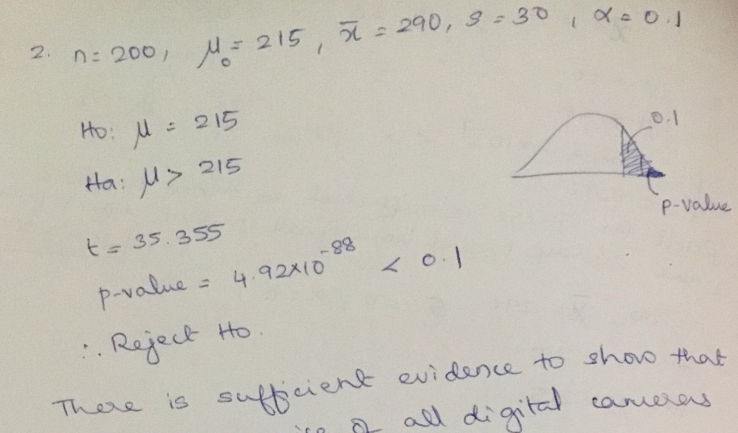 2. n = 200, μ₀ = 215, x̄ = 290, s = 30, α = 0.1
Ho: μ = 215
Ha: μ > 215
0.1
p-value
t = 35.355
p-value = 4.92×10⁻⁸⁸ < 0.1
∴ Reject Ho.
There is sufficient evidence to show that
of all digital cameras